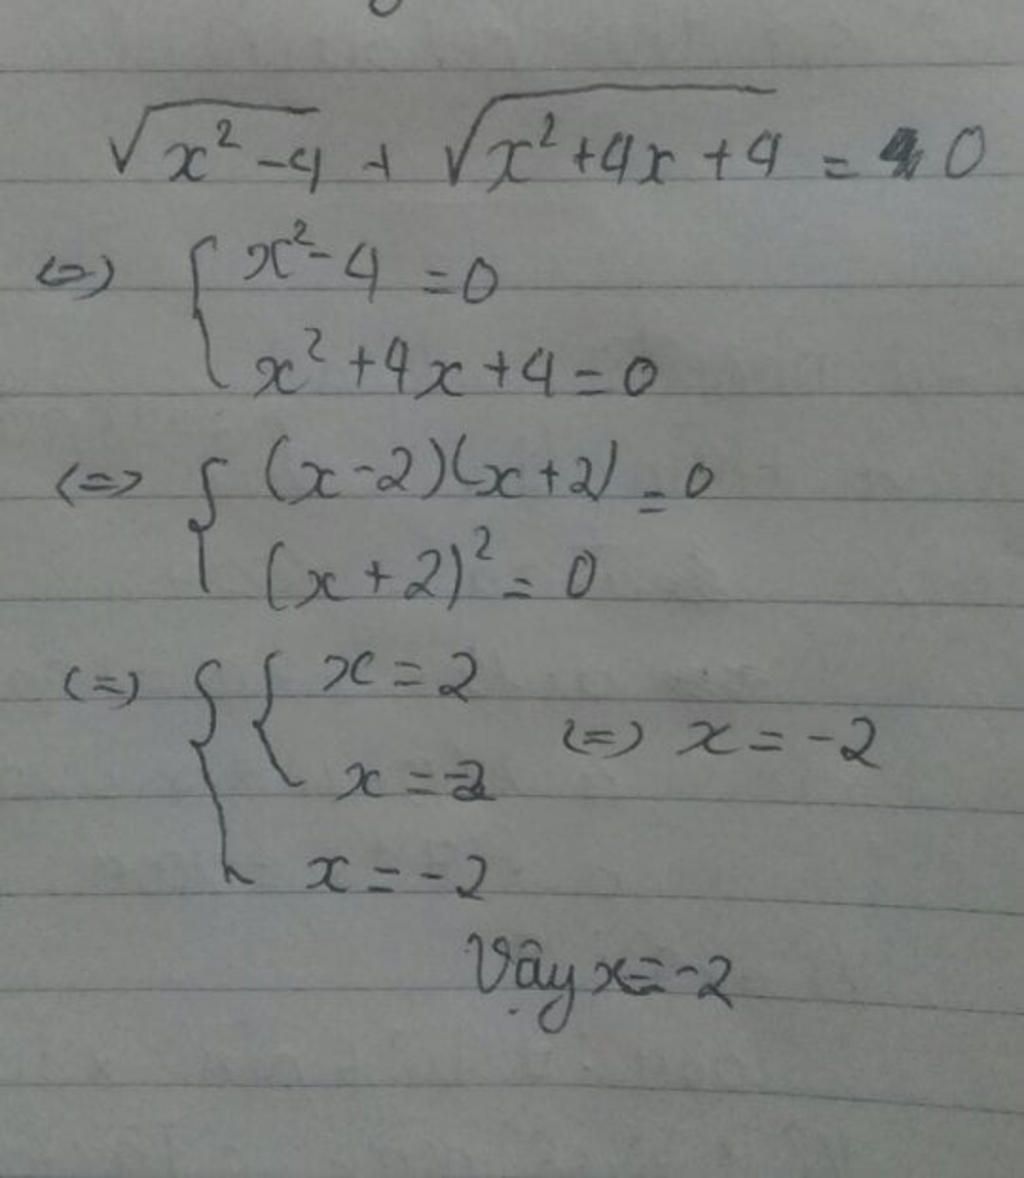 √(x² - 4) + √(x² + 4x + 4) = 0
(=) { x² - 4 = 0
x² + 4x + 4 = 0
(=) { (x - 2)(x + 2) = 0
(x + 2)² = 0
(=) { { x = 2
x = -2 (=) x = -2
x = -2
Vậy x = -2